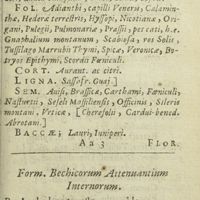 FOL. Adianthi, capilli Veneris, Calamin-
thæ, Hederæ terrestris, Hyssopi, Nicotianæ, Ori-
gani, Pulegii, Pulmonariæ, Prassii, per cati, h.e.
Gnaphalium montanum, Scabiosæ, ros Solis,
Tussilago Marrubii Thymi, Spicæ, Veronicæ, Bo-
tryos Epithymi, Scordii Fœniculi.
CORT. Aurant. ac citri.
LIGNA. Sassafr. Guaj.]
SEM. Anisi, Brassicæ, Carthami, Fœniculi,
Nasturtii, Sefeli Massiliensis, Officinis, Sileris
montani, Urticæ, [Cherefolii, Cardui-bened.
Abrotani.]
BACCÆ; Lauri, Juniperi.
Aa 3 FLOR.
Form. Bechicorum Attenuantium
Internorum.